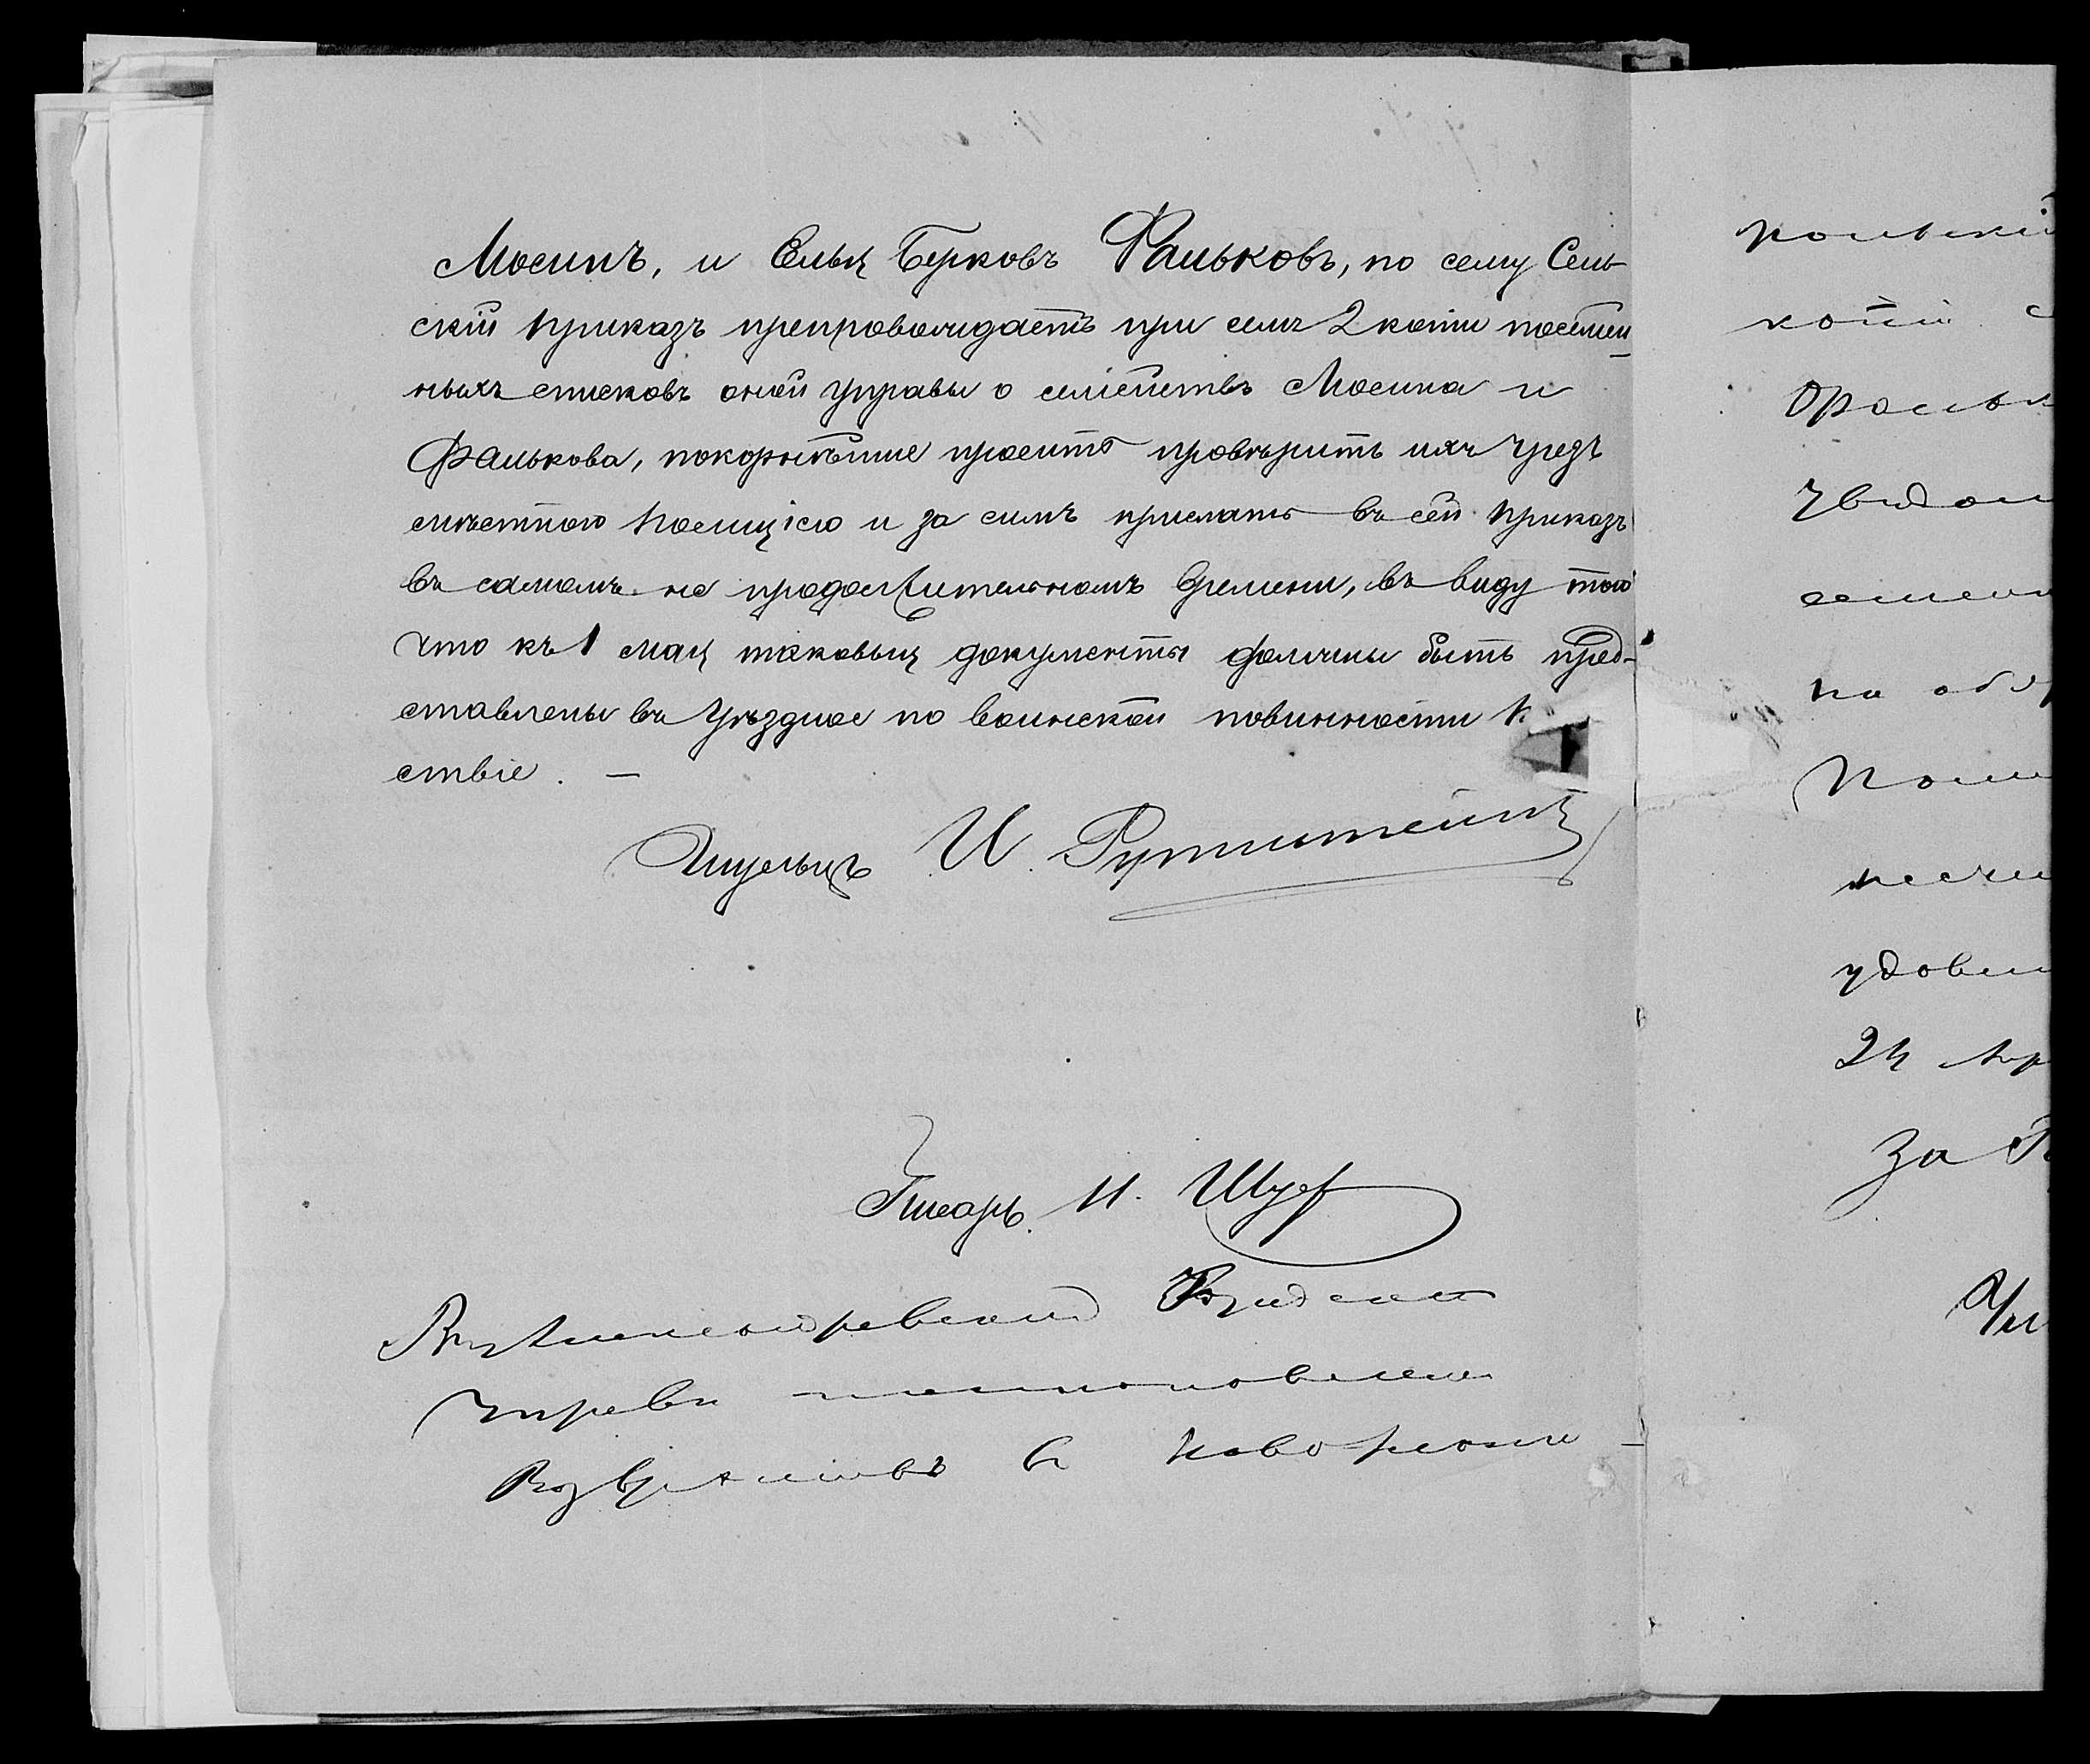 Мосинъ, и Ельц Берковъ Фальковъ, по сему Сель-
скій Приказъ препровождаетъ при семъ 2 копіи посемей-
ныхъ списковъ оной Управы о семействѣ Мосина и
Фалькова, покорнѣйше проситъ провѣрить ихъ чрезъ
мѣстною полицію и за симъ прислать въ сей Приказъ
въ самомъ не продолжительномъ времени, въ виду того
что къ 1 мая таковыя документы должны быть пред-
ставлены въ Уѣздное по воинской повинности
ствіе. —
Шульцъ И. Рутштейнъ
Писарь И. Шуф
Въ Александровскій
Управы
Возвратить въ
польскій
копіи
увѣдом
семей
на об
Поли
удовл
24 Апр
За